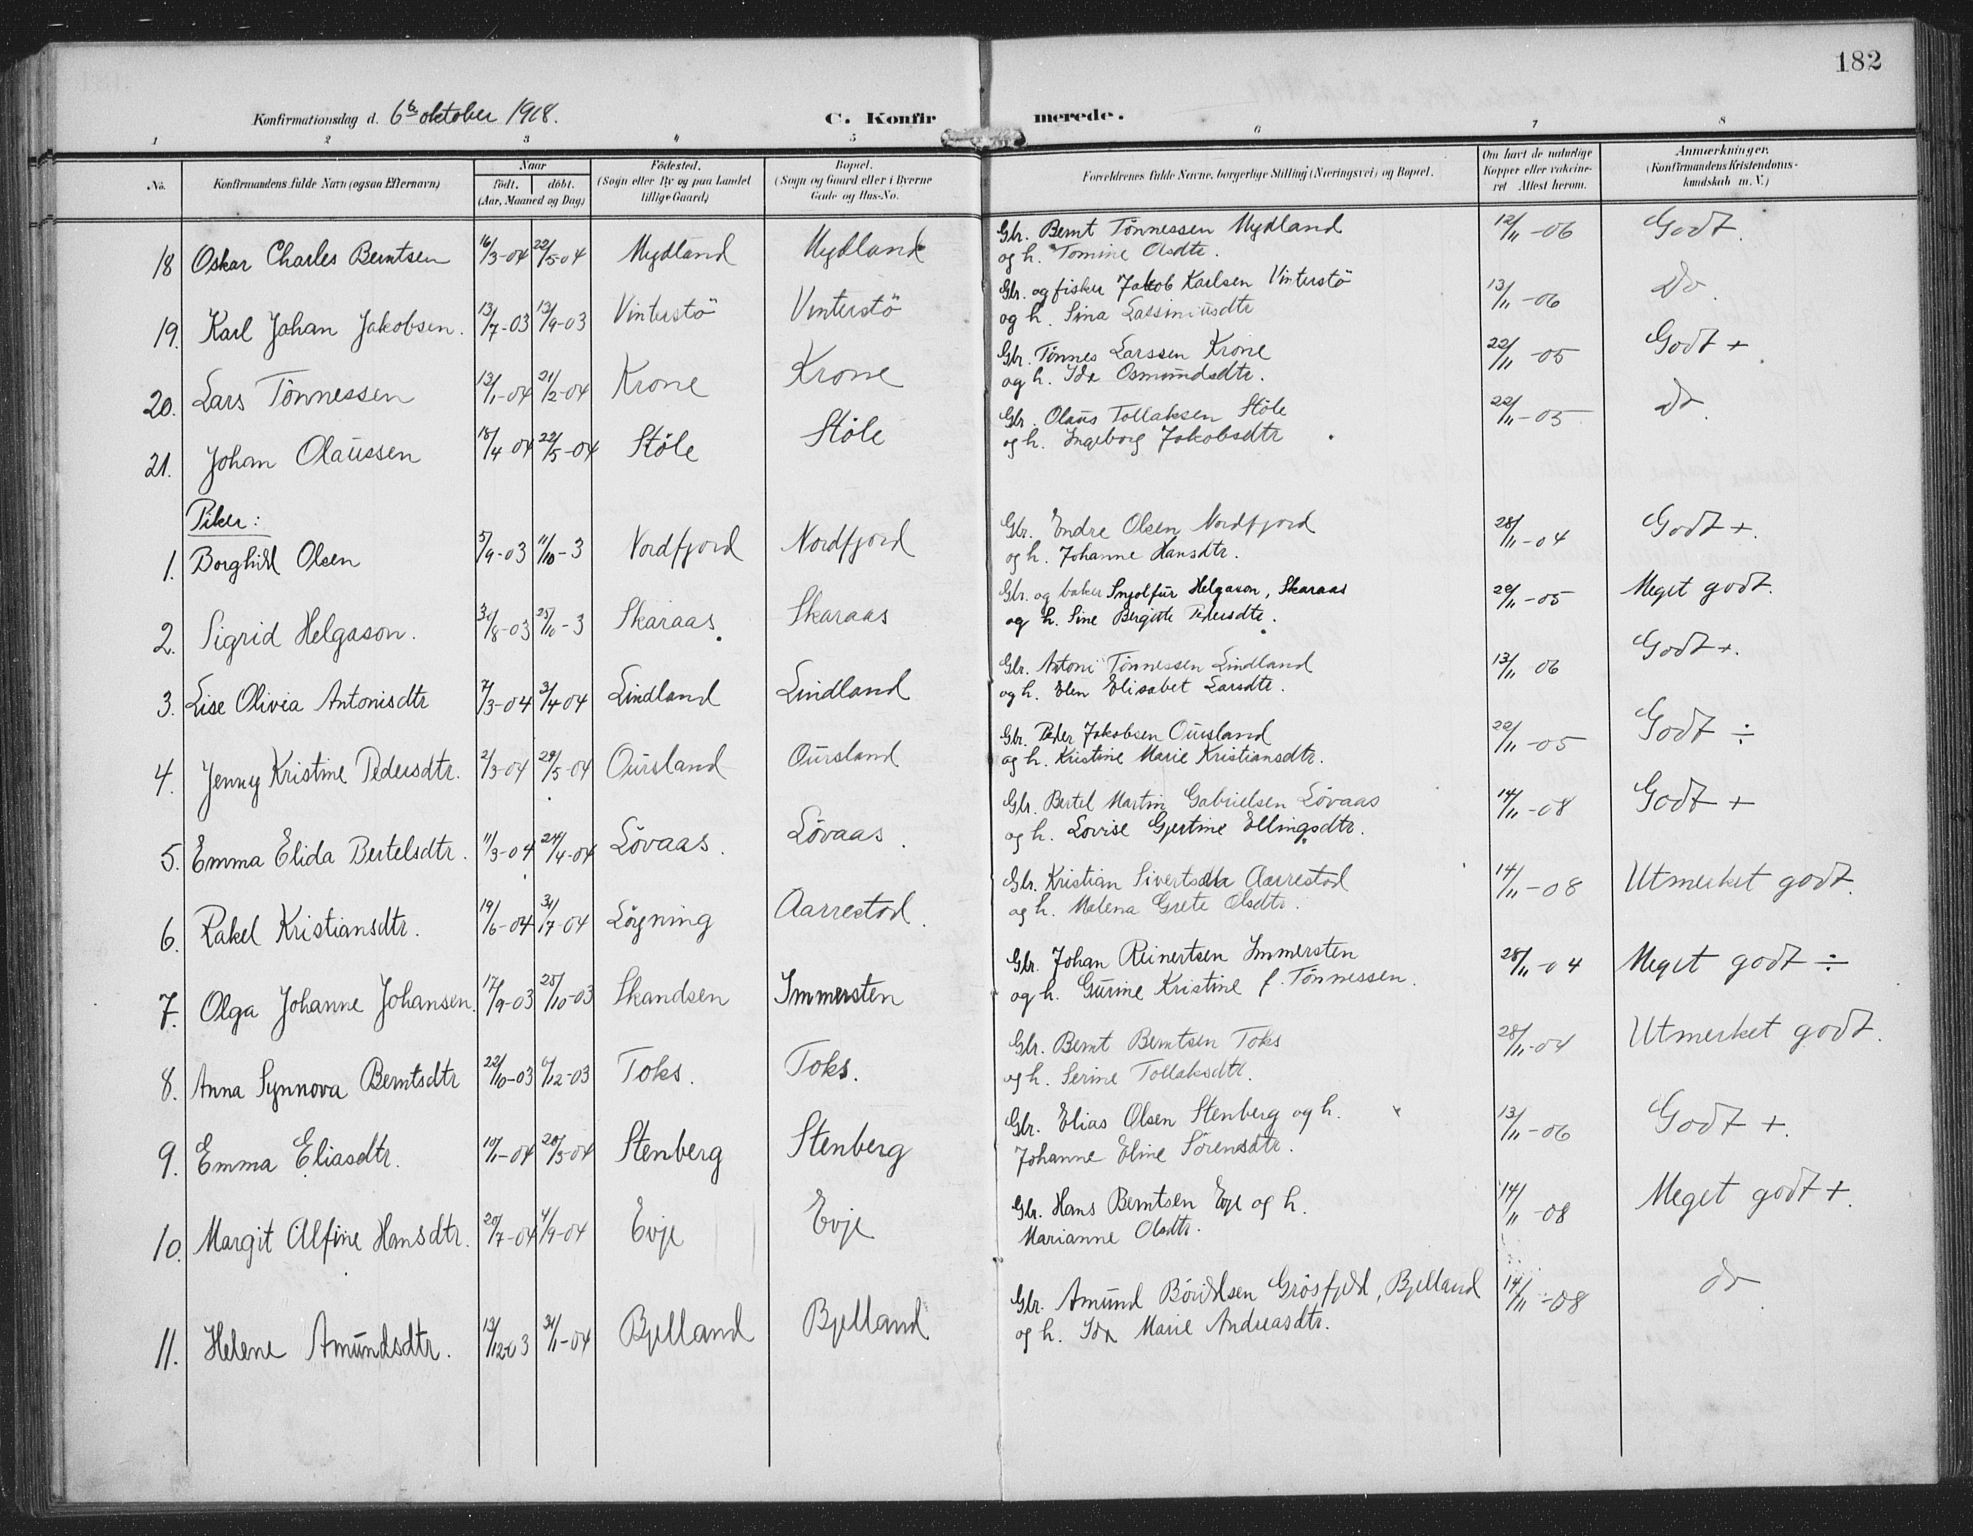 182
Konfirmationsdag d. 6te oktober 1918. C. Konfirmerede.
1 2 3 4 5 6 7 8
No. Konfirmandens fulde Navn (ogsaa Efternavn) Naar födt. döbt. (Aar, Maaned og Dag) Födested. (Sogn eller By og paa Landet tillige Gaard) Bopæl. (Sogn og Gaard eller i Byerne Gade og Hus-No. Forældrenes fulde Navne, borgerlige Stilling (Næringsvei) og Bopæl. Om havt de naturlige Kopper eller vakcineret Attest herom. Anmærkninger. (Konfirmandens Kristendomskundskab m. V.)
18 Oskar Charles Berntsen 16/3-04 22/5-04 Mydland Mydland Gbr. Bernt Tönnessen Mydland 12/11-06 Godt.
og h. Tomine Olsdtr.
19. Karl Johan Jakobsen. 13/7-03 13/9-03 Vinterstö Vinterstö Gbr. og fisker Jakob Karlsen Vinterstö 13/11-06 Do.
og h. Sina Lassiniusdtr
20. Lars Tönnessen 12/1-04 21/2-04 Krone Krone Gbr. Tönnes Larssen Krone 22/11-05 Godt +
og h. Ida Osmundsdtr.
21. Johan Olaussen 18/4 04 22/5-04 Stöle Stöle Gbr. Olaus Tollaksen Stöle 22/11-05 do.
og h. Ingeborg Jakobsdtr
Piker:
1. Borghild Olsen 5/9-03 11/10-3 Nordfjord Nordfjord Gbr. Endre Olsen Nordfjord 28/11-04 Godt +.
og h. Johanne Hansdtr.
2. Sigrid Helgason. 30/8-03 25/10-3 Skaraas. Skaraas Gbr. og baker Snjolfur Helgason, Skaraas 29/11-05 Meget godt.
og h. Sine Bergitte Pedersdtr.
3. Lise Olivia Antonisdtr 7/3-04 3/4-04 Lindland Lindland Gbr. Antoni Tönnessen Lindland 13/11 06 Godt +.
og h. Elen Elisabet Larsdtr.
4. Jenny Kristine Pedersdtr. 2/3-04 29/5-04 Oursland Oursland Gbr. Peder Jakobsen Oursland 22/11-05 Godt ÷
og h. Kristine Marie Kristiansdtr.
5. Emma Elida Bertelsdtr. 11/3-04 24/4-04 Lövaas. Lövaas. Gbr. Bertel Martin Gabrielsen Lövaas 14/11-08 Godt +
og h. Lovise Gjertine Ellingsdtr.
6. Rakel Kristiansdtr. 19/6-04 31/7-04 Lögning Aarrestad. Gbr. Kristian Aarrestad 14/11-08 Utmerket godt.
og h. Malena Grete Olsdtr.
7. Olga Johanne Johansen. 17/9-03 25/10-03 Skandsen Immersten Gbr. Johan Reinertsen Immersten 28/11-04 Meget godt ÷
og h. Gurine Kristine f. Tönnessen.
8. Anna Synnova Berntsdtr 22/10-03 6/12-03 Toks. Toks. Gbr. Bernt Berntsen Toks 28/11-04 Utmerket godt.
og h. Serine Tollaksdtr.
9. Emma Eliasdtr. 10/1-04 20/3-04 Stenberg Stenberg Gbr. Elias Olsen Stenberg og h. 13/11-06 Godt +.
Johanne Eline Sörensdtr.
10. Margit Alfine Hansdtr. 20/7-04 4/9-04 Evje Evje Gbr. Hans Berntsen Evje og h. 14/11-08 Meget godt +.
Marianne Olsdtr.
11. Helene Amundsdtr. 13/12-03 31/1-04 Bjelland Bjelland Gbr. Amund Grösfjeld, Bjelland 14/11-08 do
og h. Ida Marie Andreasdtr.